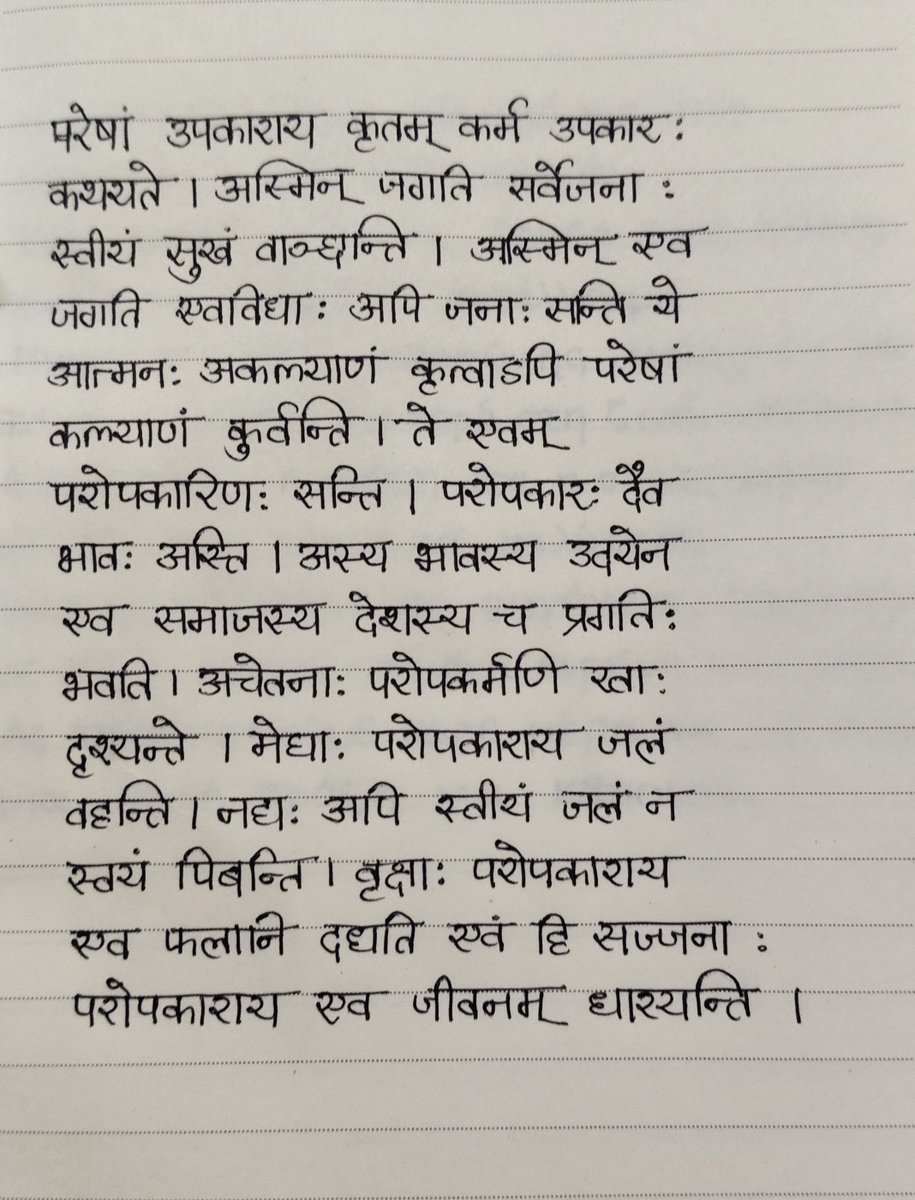 परेषां उपकाराय कृतम् कर्म उपकार:
कथयते । अस्मिन् जगति सर्वेजना :
स्वीयं सुखं वाञ्छन्ति । अस्मिन् एव
जगति एवविधा: अपि जना: सन्ति ये
आत्मन: अकल्याणं कृत्वाऽपि परेषां
कल्याणं कुर्वन्ति । ते एवम्
परोपकारिण: सन्ति । परोपकार: दैव
भाव: अस्ति । अस्य भावस्य उदयेन
एव समाजस्य देशस्य च प्रगति:
भवति । अचेतना: परोपकर्मणि रता:
दृश्यन्ते । मेघा: परोपकाराय जलं
वहन्ति । नद्य: अपि स्वीयं जलं न
स्वयं पिबन्ति । वृक्षा: परोपकाराय
एव फलानि दधति एवं हि सज्जना :
परोपकाराय एव जीवनम् धारयन्ति ।